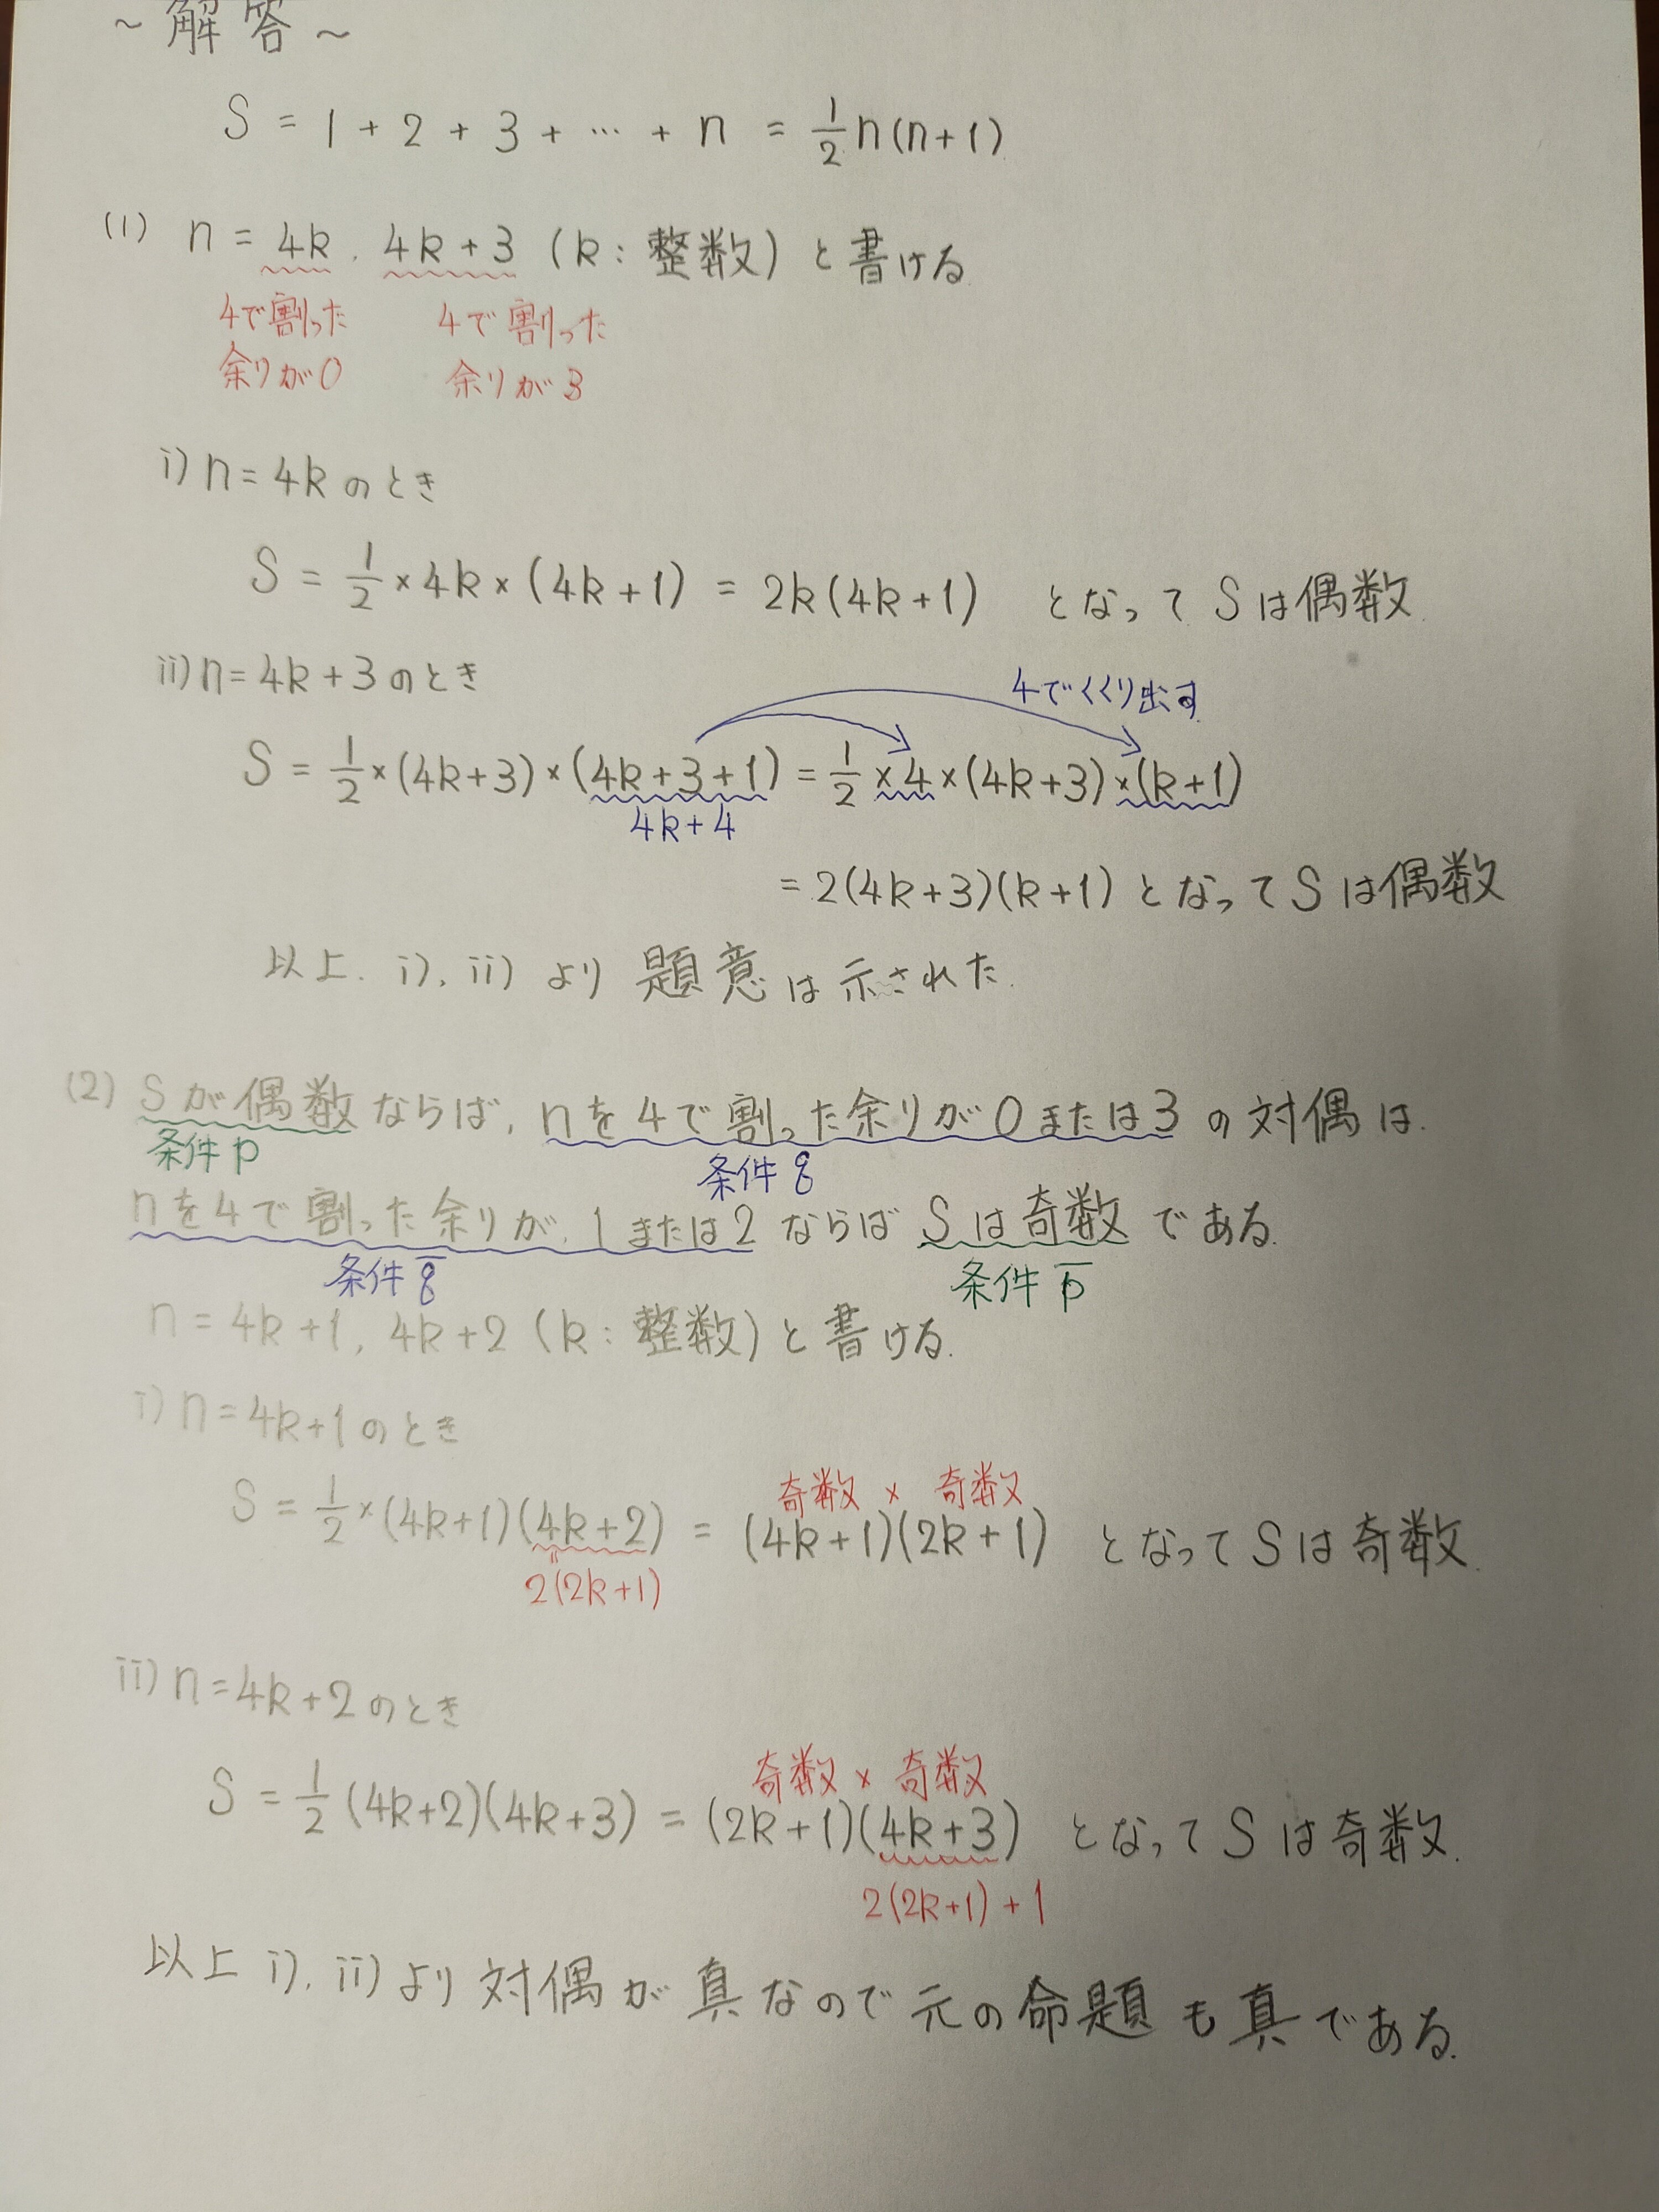 ~解答~
S = 1 + 2 + 3 + … + n = 1/2 n(n+1)
(1) n = 4k, 4k+3 (k:整数)と書ける.
4で割った 4で割った
余りが0 余りが3
i) n=4kのとき
S = 1/2 × 4k × (4k+1) = 2k(4k+1) となって Sは偶数.
ii) n=4k+3のとき
4でくくり出す.
S = 1/2 × (4k+3) × (4k+3+1) = 1/2 × 4 × (4k+3) × (k+1)
4k+4
= 2(4k+3)(k+1) となって Sは偶数
以上. i), ii) より 題意は示された.
(2) Sが偶数ならば, nを4で割った余りが0または3の対偶は.
条件p 条件q
nを4で割った余りが, 1または2ならば Sは奇数である.
条件q̄ 条件p̄
n = 4k+1, 4k+2 (k:整数)と書ける.
i) n=4k+1のとき
奇数 × 奇数
S = 1/2 × (4k+1)(4k+2) = (4k+1)(2k+1) となって Sは奇数.
=
2(2k+1)
ii) n=4k+2のとき
奇数 × 奇数
S = 1/2 (4k+2)(4k+3) = (2k+1)(4k+3) となって Sは奇数.
2(2k+1)+1
以上 i), ii) より 対偶が真なので元の命題も真である.